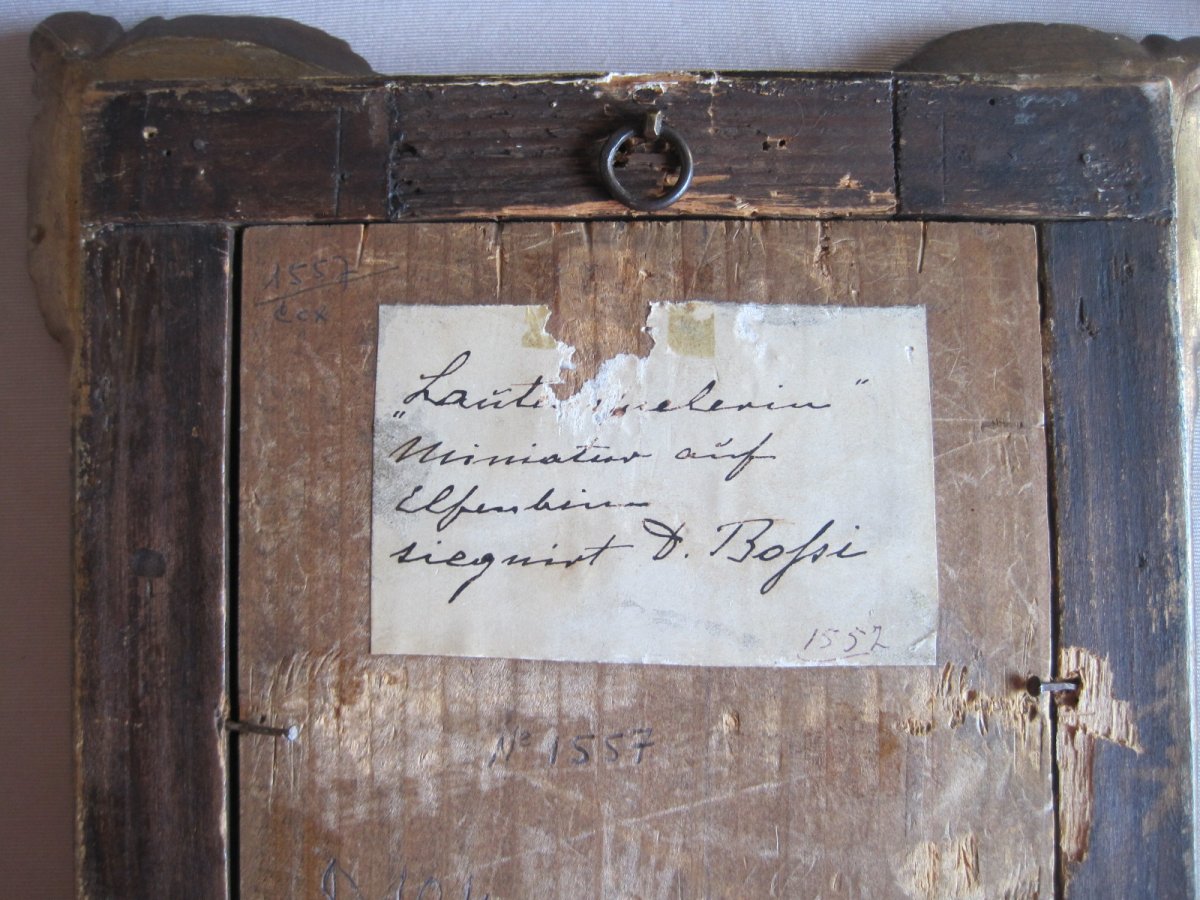 1557
ccx
„Laute...elerin"
Miniatur auf
Elfenbein
siegnirt D. Bossi
1557
No 1557